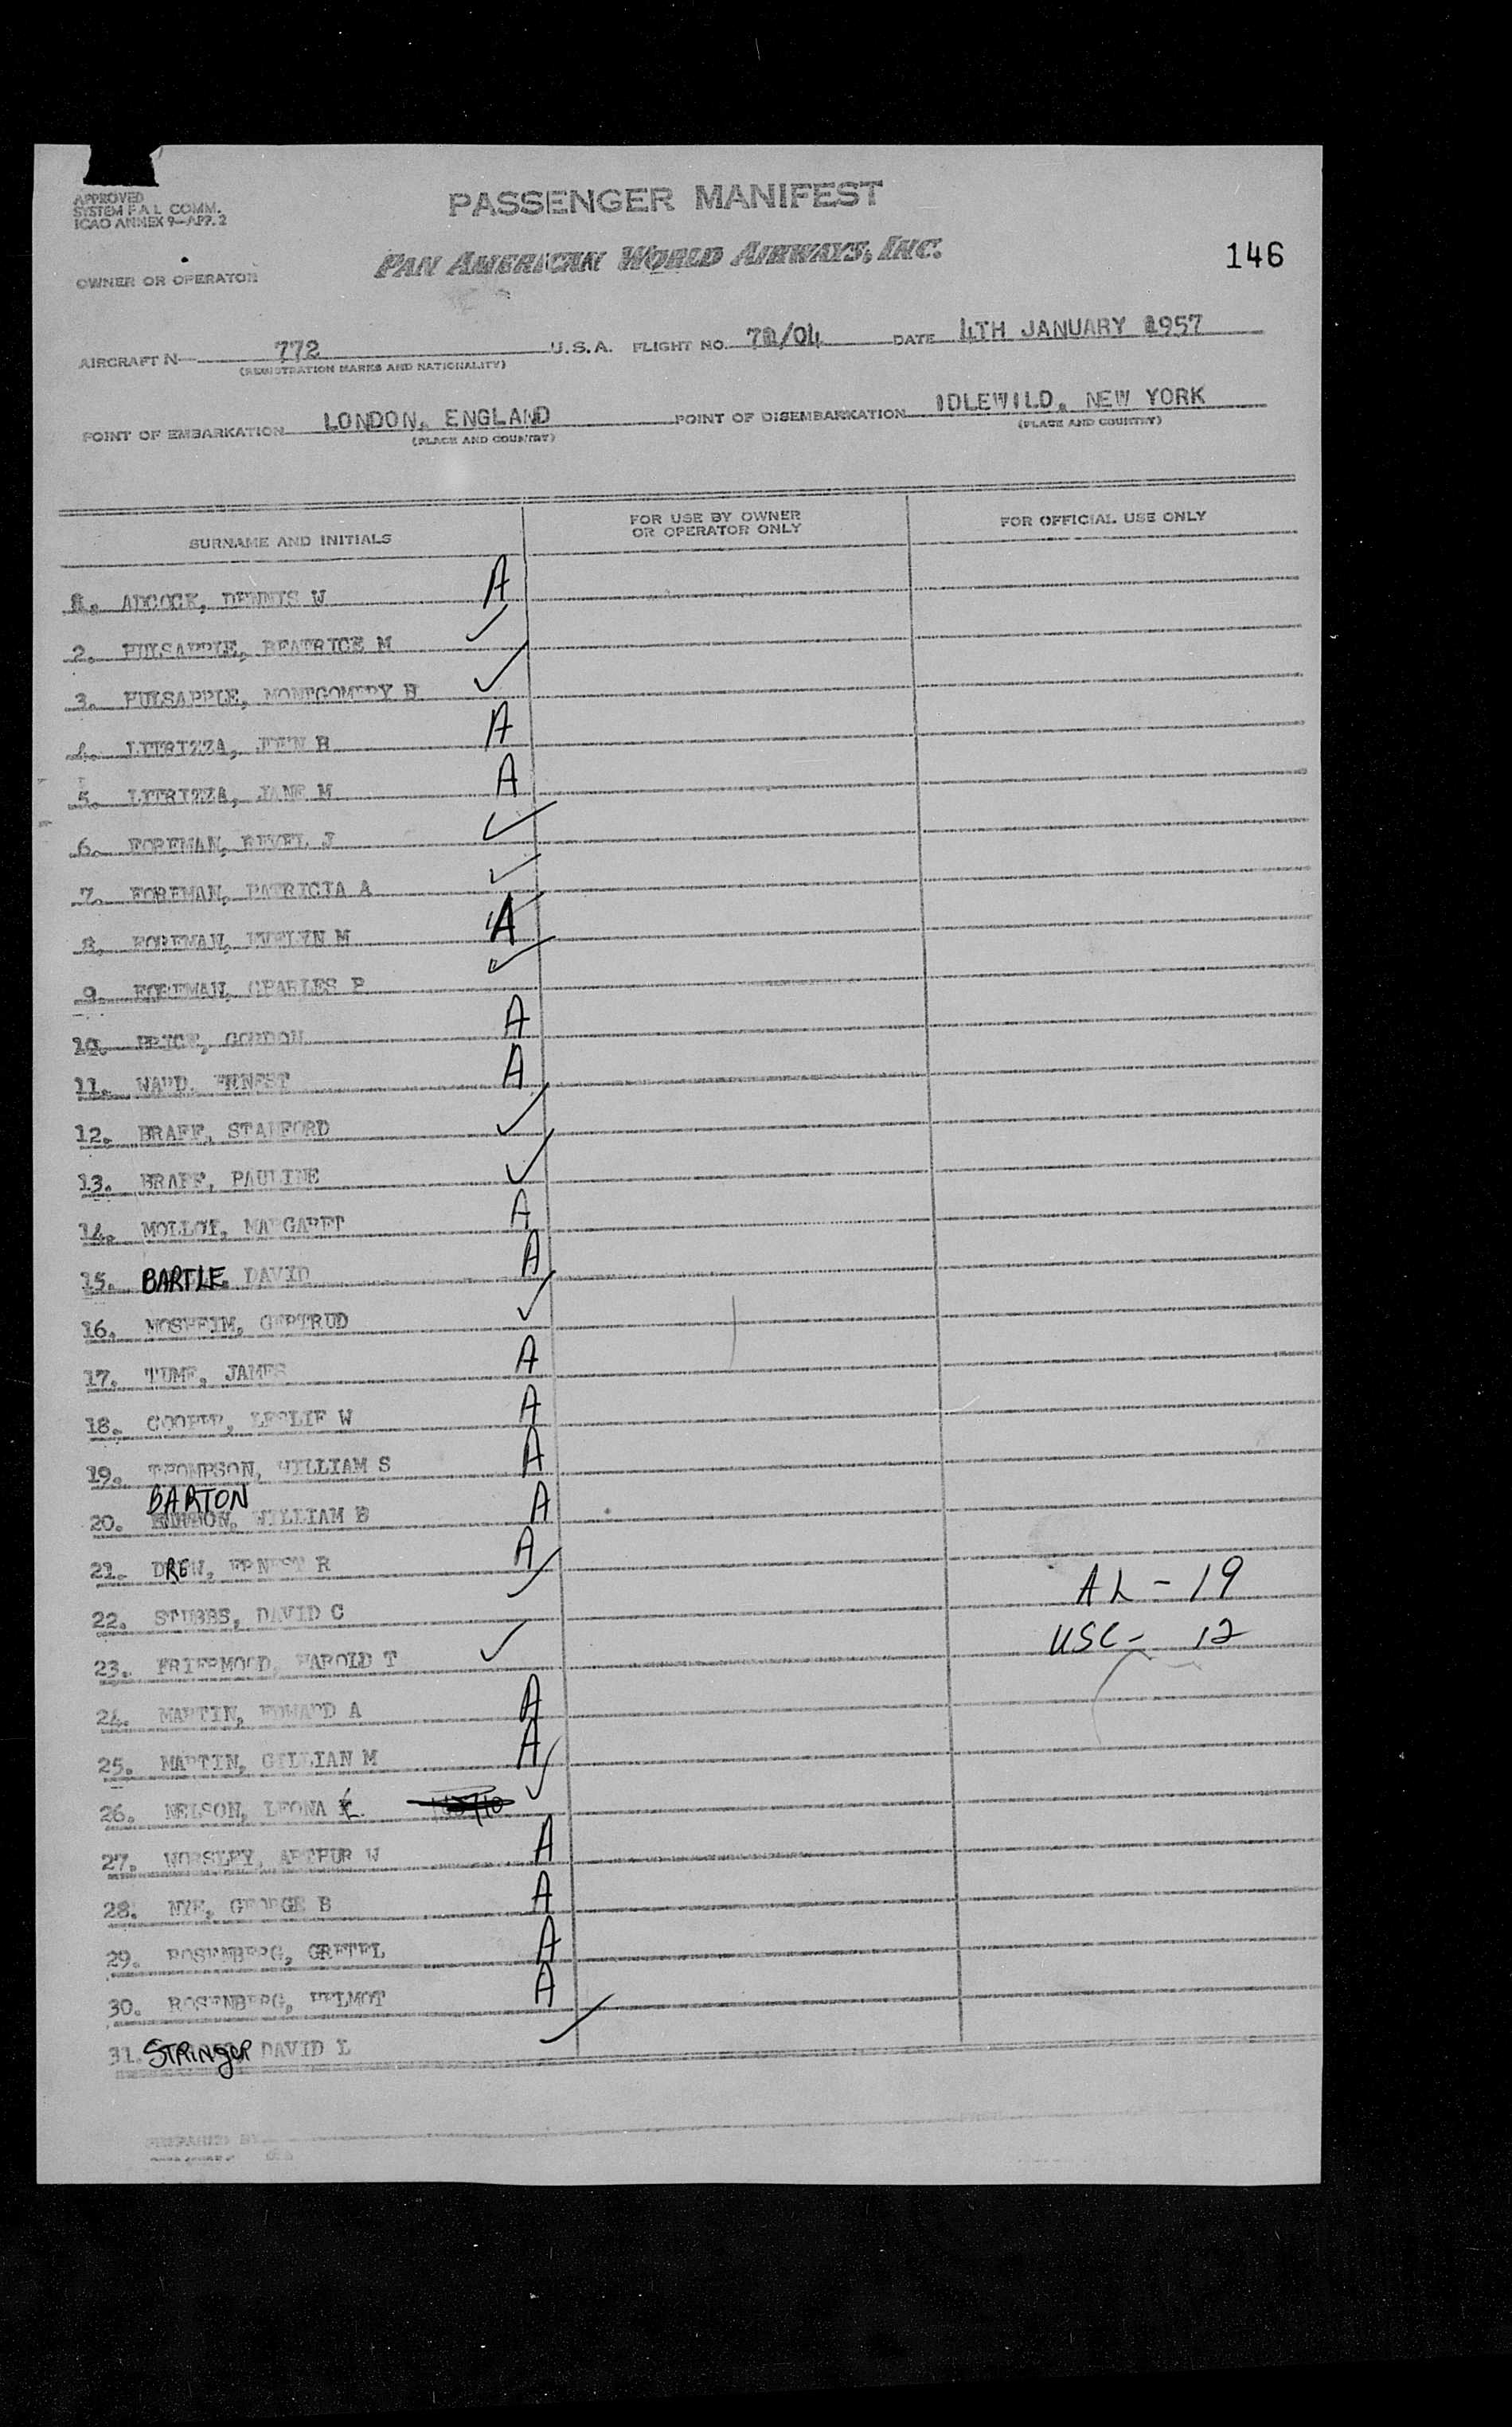 APPROVED
SYSTEM F A L COMM.
ICAO ANNEX 9—APP. 2
PASSENGER MANIFEST
PAN AMERICAN WORLD AIRWAYS, INC.
146
OWNER OR OPERATOR
AIRCRAFT N 772 U.S.A. FLIGHT NO. 71/04 DATE 4TH JANUARY 1957
(REGISTRATION MARKS AND NATIONALITY)
POINT OF EMBARKATION LONDON, ENGLAND POINT OF DISEMBARKATION IDLEWILD, NEW YORK
(PLACE AND COUNTRY) (PLACE AND COUNTRY)
SURNAME AND INITIALS FOR USE BY OWNER OR OPERATOR ONLY FOR OFFICIAL USE ONLY
1. ADCOCK, DENNIS W A
2. HULSAPPLE, BEATRICE M ✓
3. HULSAPPLE, MONTGOMERY H ✓
4. LITRIZZA, JOHN R A
5. LITRIZZA, JANE M A
6. FOREMAN, J ✓
7. FOREMAN, PATRICIA A ✓
8. FOREMAN, EVELYN M A
9. FOREMAN, CHARLES P ✓
10. PRICE, GORDON A
11. WARD, ERNEST A
12. BRAFF, STANFORD ✓
13. BRAFF, PAULINE ✓
14. MOLLOY, MARGARET A
15. BARTLE DAVID A
16. MOSHEIM, GERTRUD ✓
17. JAMES A
18. COOPER, LESLIE W A
19. THOMPSON, WILLIAM S A
20. BARTON WILLIAM B A
21. DREW, ERNEST R A
22. STUBBS, DAVID C ✓
AL - 19
23. FRIERMOOD, HAROLD T ✓
USC - 12
24. MARTIN, EDWARD A A
25. MARTIN, GILLIAN M A
26. NELSON, LEONA L ✓
27. WORSLEY, ARTHUR W A
28. NYE, GEORGE B A
29. ROSENBERG, GRETEL A
30. ROSENBERG, HELMOT A
31. STRINGER DAVID L ✓
PREPARED BY